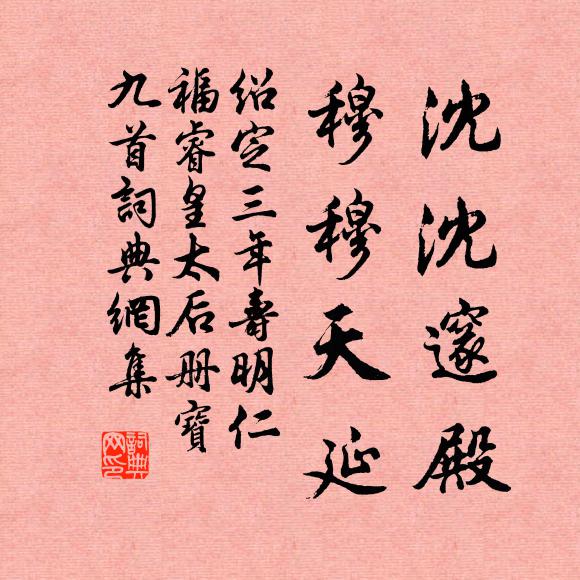 沈沈邃殿
穆穆天延
绍定三年壽明仁
福睿皇太后册寶
九首詞典網集
詞典网印